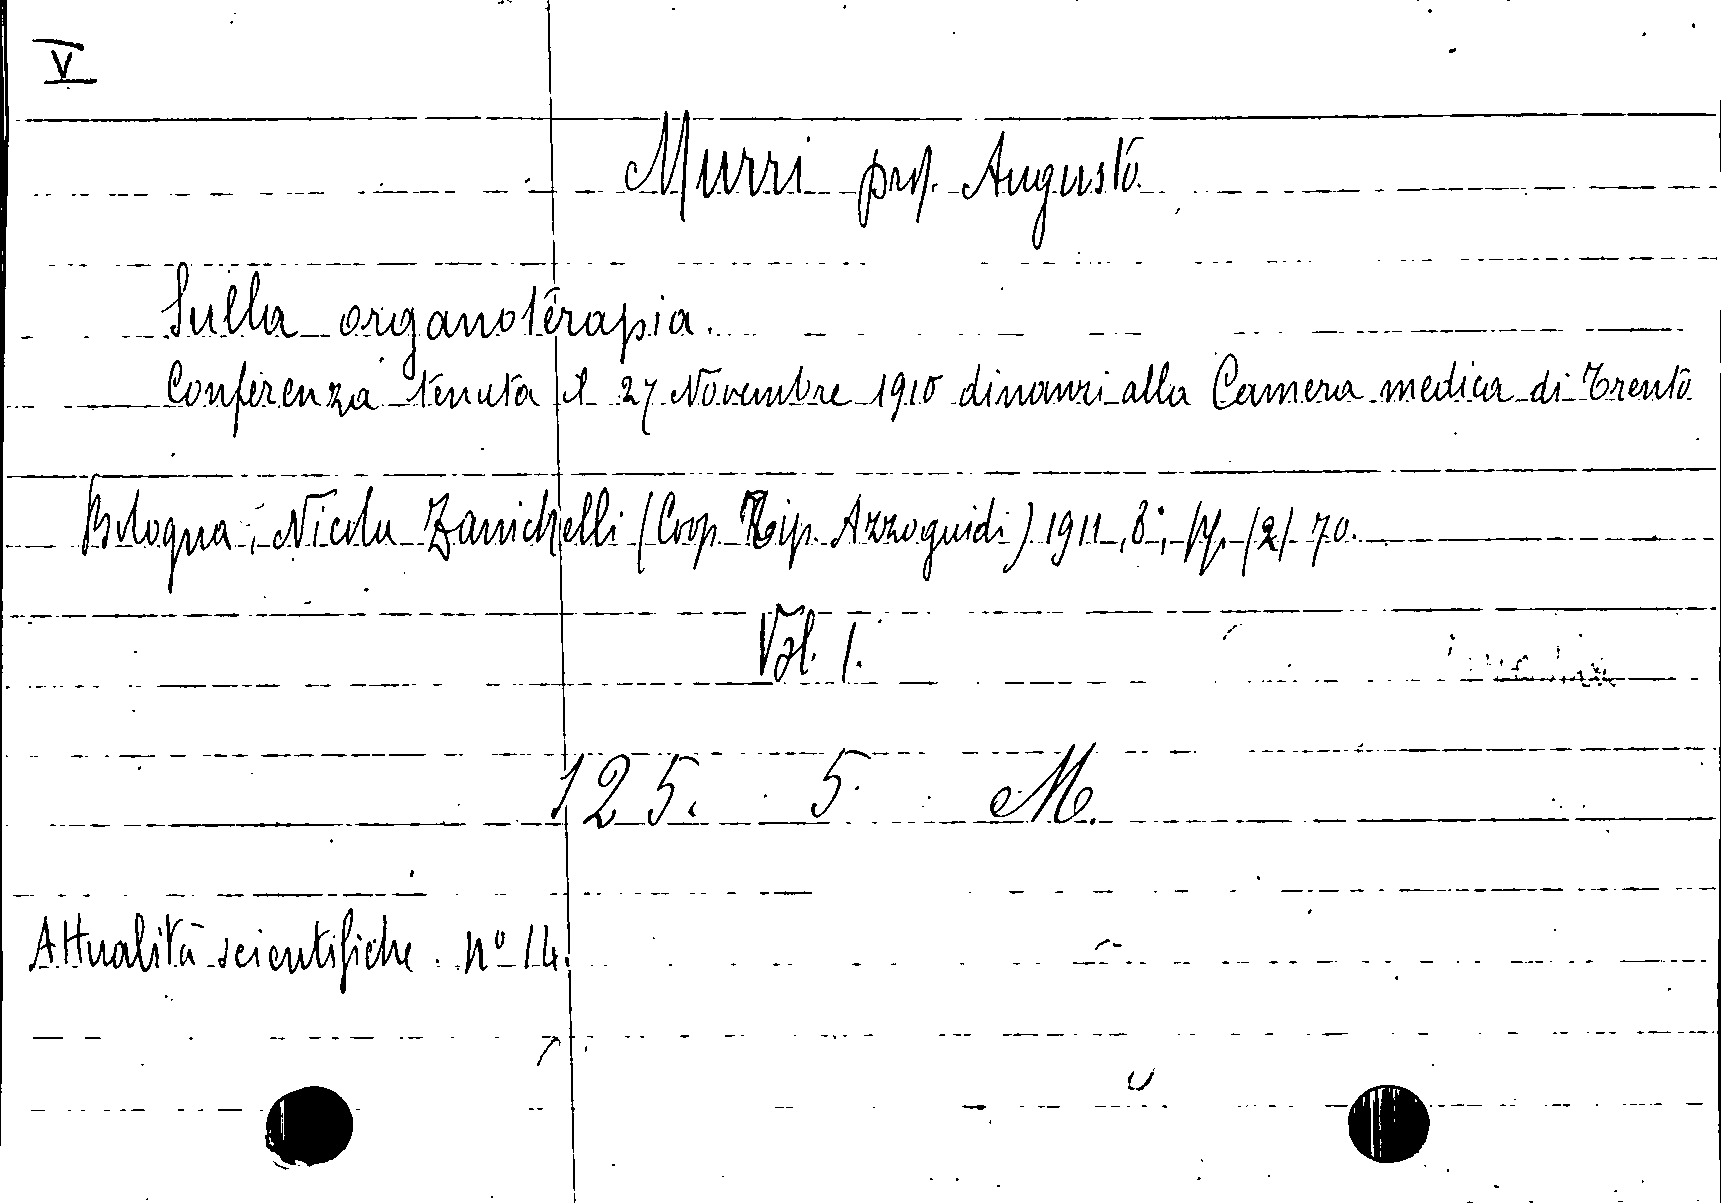 V
Murri prof. Augusto
Sulla organoterapia.
Conferenza tenuta il 27 Novembre 1910 dinanzi alla Camera medica di Trento
Bologna, Nicola Zanichelli (Coop. Tip. Azzoguidi) 1911, 8°; pp. /2/ 70.
Vol. 1.
125. 5. M.
Attualità scientifiche. n° 14.